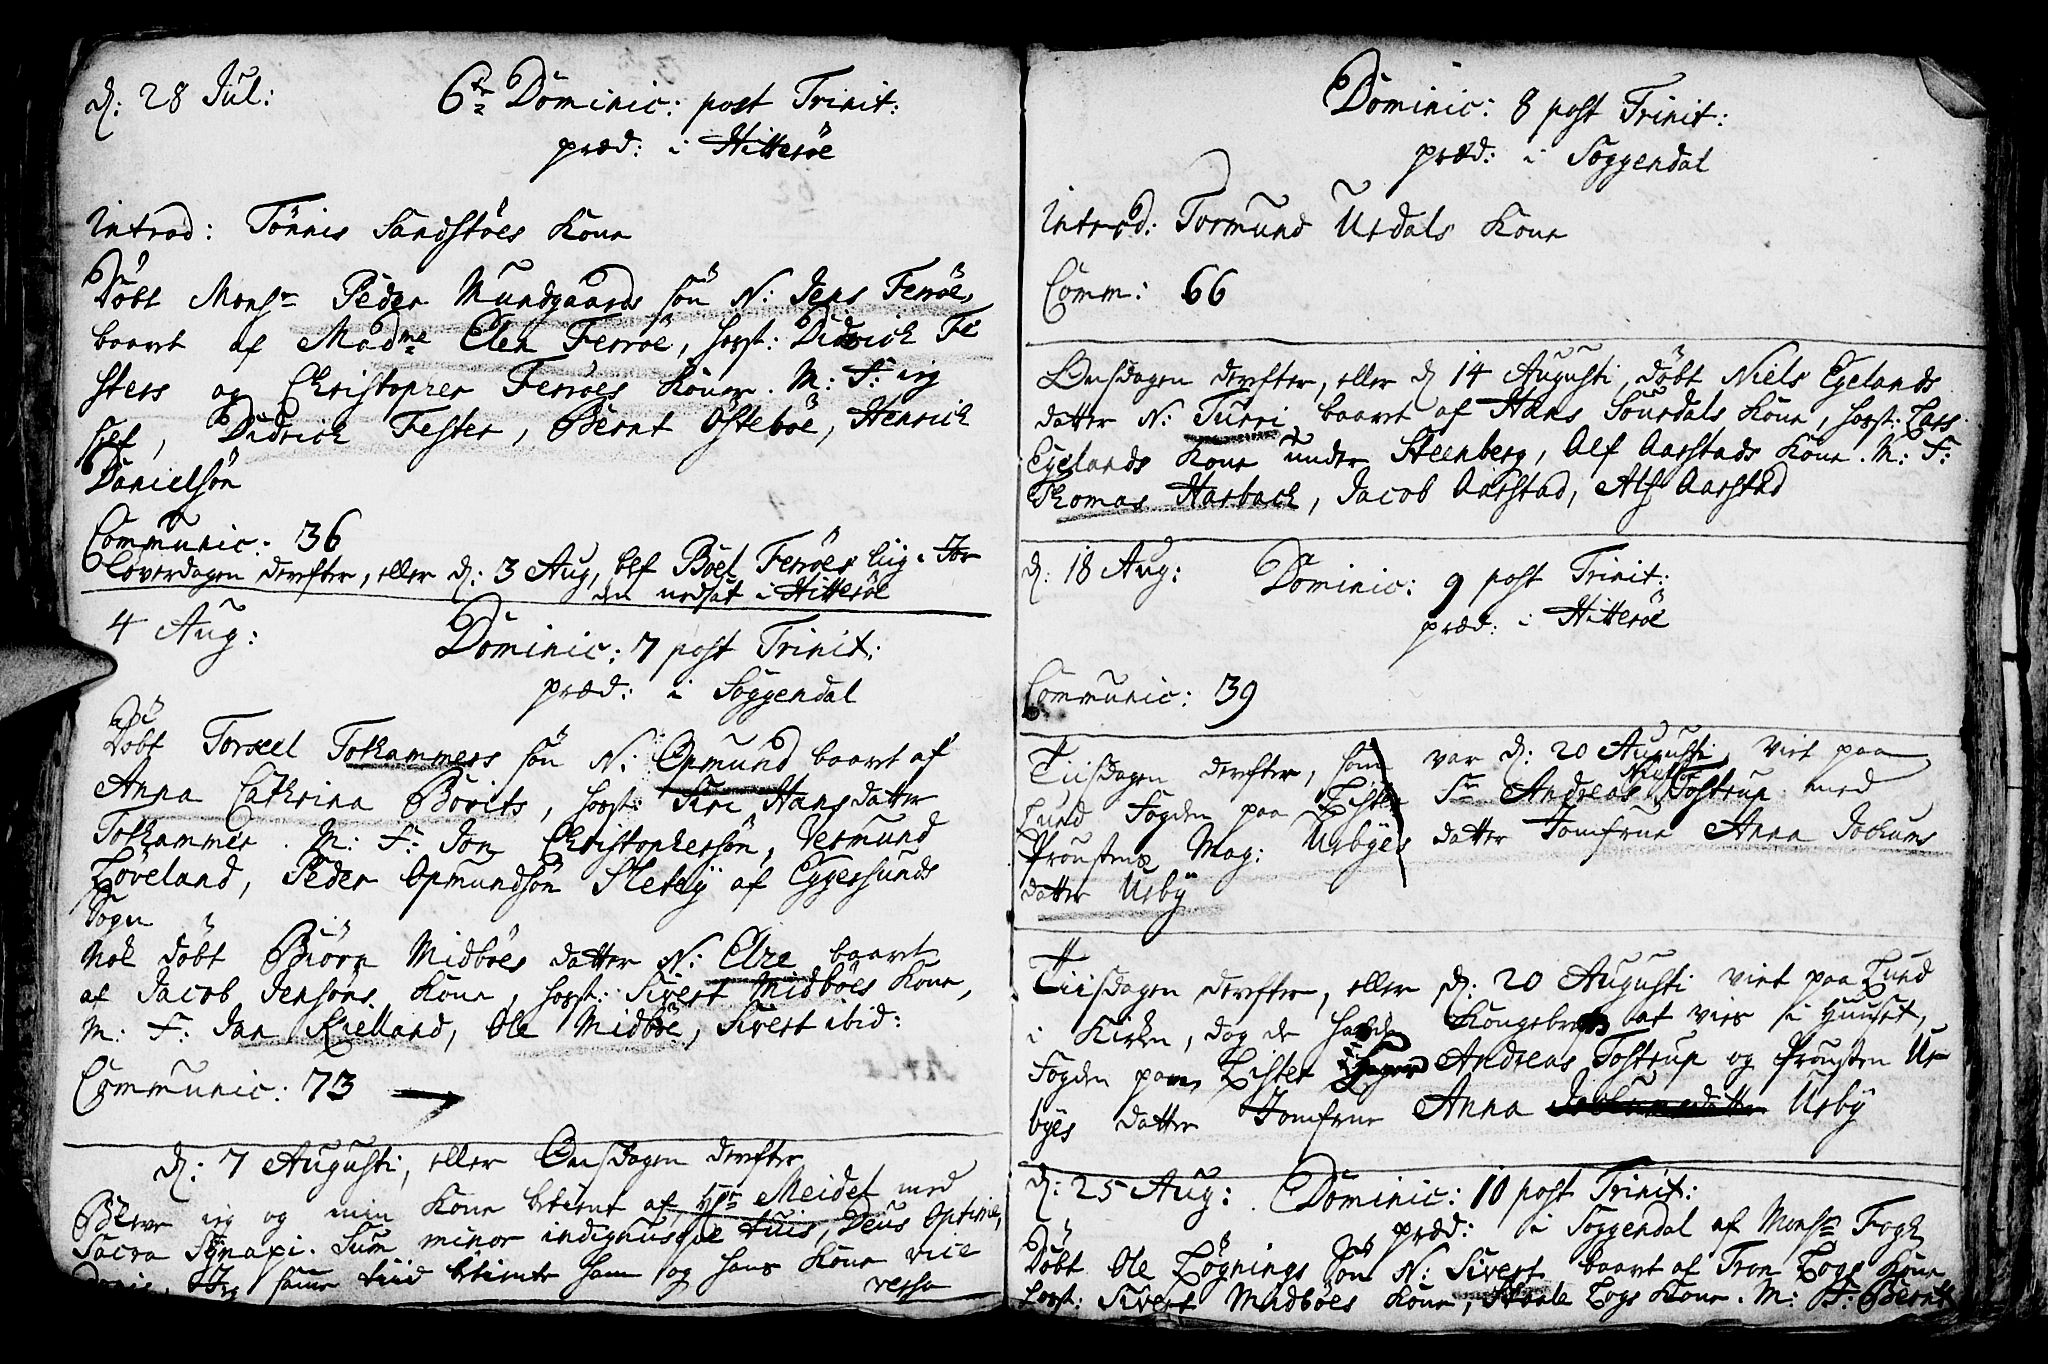 d: 28 Jul: 6te Dominic: post Trinit:
præd: i Hitteröe
Introd: Tönnis Sandstöes Kone
Döbt Monsr Peder Mundgaards sön N: Jens Ferröe,
baaret af Madme Elen Ferröe, host: Didrick Fe
sters og Christopher Ferröes Koner. M: F: ieg
self, Didrick Fester, Bernt Östeböe, Henrich
Danielsön
Communic: 36
Löverdagen derefter, eller d: 3 Aug, blef Boel Ferröes liig i Jor
den nedsat i Hitteröe
4 Aug: Dominic: 7 post Trinit:
præd: i Soggendal
Döbt Torkel Tokammers sön N: Opmund baaret af
Anna Cathrina Borits, host: Siri Hansdatter
Tokammer. M: F: Jon Christophersön, Vermund
Löveland, Peder Opmundsön Sletebÿ af Eggersunds
Sogn
Nok döbt Biörn Midböes datter N: Elze baaret
af Jacob Jensöns Kone, host: Sivert Midböes Kone,
M: F: Jan Kielland, Ole Midböe, Sivert ibid:
Communic: 73
d: 7 Augusti, eller Onsdagen derefter
Bleve ieg og min Kone betient af Hr Meidel med
Sacra Synaxi. Sum minor indignusque tuis, Deus Optime,
Donis. Jeg samme tiid betiente ham og hans Kone vice
versa
Dominic: 8 post Trinit:
præd: i Soggendal
Introd: Tormund Urdals Kone
Comm: 66
Onsdagen derefter, eller d 14 Augusti, döbt Niels Egelands
datter N: Turri, baaret af Hans Sourdals Kone, host: Lars
Egelands Kone under Steenberg, Alf Aarstads Kone. M: F:
Thomas Harback, Jacob Aarstad, Alf Aarstad
d: 18 Aug: Dominic: 9 post Trinit:
præd: i Hitteröe
Communic: 39
Tiisdagen derefter, som var d: 20 Augusti, viet paa
Lund Fogden paa Lister Sr Andreas Tostrup med
Proustens Mag: Urbyes datter Jomfrue Anna Jochums
datter Urbÿ
Tiisdagen derefter, eller d: 20 Augusti viet paa Lund
i Kirken, dog de hafde Kongebref at vies i Huuset,
Fogden paa Lister Andreas Tostrup og Prousten Ur
byes datter Jomfrue Anna Jochumsdatter Urbÿ
d: 25 Aug: Dominic: 10 post Trinit:
præd: i Soggendal af Monsr Fogh
Döbt Ole Lögnings Sön N: Sivert baaret af Tron Logs Kone
host: Sivert Midböes Kone, Staale Logs Kone. M: F: Bernt